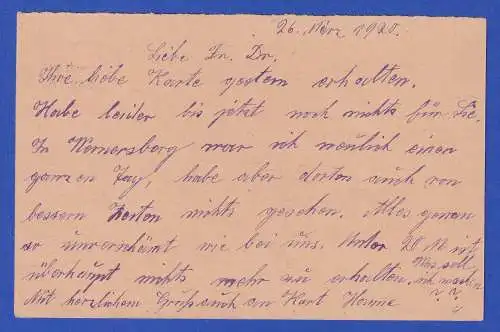 26. März 1920.
Liebe Fr. Dr.
Ihre liebe Karte gestern erhalten.
Habe leider bis jetzt noch nichts für Sie.
In Memersberg war ich neulich einen
ganzen Tag, habe aber dorten auch von
bessern nichts gesehen. Alles genau
so unverschämt wie bei uns. Unter 20 M ist
überhaupt nichts mehr zu erhalten. Was soll
ich machen
? ?
Mit herzlichem Gruß auch an Kart Henne